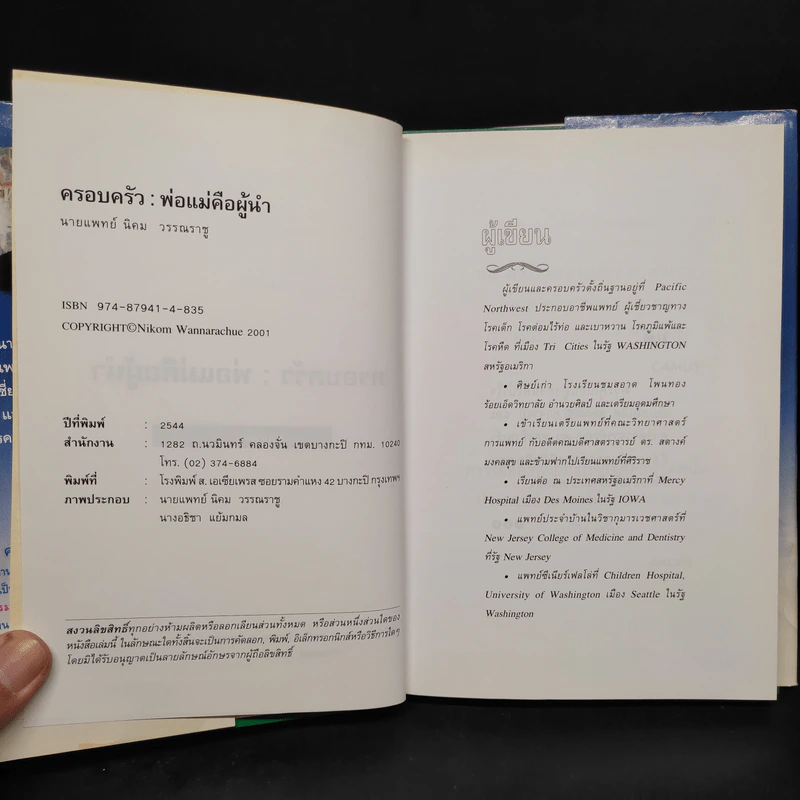 ครอบครัว : พ่อแม่คือผู้นำ
นายแพทย์ นิคม วรรณราชู
ISBN 974-87941-4-835
COPYRIGHT©Nikom Wannarachue 2001
ปีที่พิมพ์ : 2544
สำนักงาน : 1282 ถ.นวมินทร์ คลองจั่น เขตบางกะปิ กทม. 10240
โทร. (02) 374-6884
พิมพ์ที่ : โรงพิมพ์ ส. เอเซียเพรส ซอยรามคำแหง 42 บางกะปิ กรุงเทพฯ
ภาพประกอบ : นายแพทย์ นิคม วรรณราชู
นางอธิชา แย้มกมล
สงวนลิขสิทธิ์ทุกอย่างห้ามผลิตหรือลอกเลียนส่วนทั้งหมด หรือส่วนหนึ่งส่วนใดของ
หนังสือเล่มนี้ ในลักษณะใดทั้งสิ้นจะเป็นการคัดลอก, พิมพ์, อิเล็กทรอกนิกส์หรือวิธีการใดๆ
โดยมิได้รับอนุญาตเป็นลายลักษณ์อักษรจากผู้ถือลิขสิทธิ์
ผู้เขียน
ผู้เขียนและครอบครัวตั้งถิ่นฐานอยู่ที่ Pacific
Northwest ประกอบอาชีพแพทย์ ผู้เชี่ยวชาญทาง
โรคเด็ก โรคต่อมไร้ท่อ และเบาหวาน โรคภูมิแพ้และ
โรคหืด ที่เมือง Tri Cities ในรัฐ WASHINGTON
สหรัฐอเมริกา
• ศิษย์เก่า โรงเรียนชมสอาด โพนทอง
ร้อยเอ็ดวิทยาลัย อำนวยศิลป์ และเตรียมอุดมศึกษา
• เข้าเรียนเตรียแพทย์ที่คณะวิทยาศาสตร์
การแพทย์ กับอดีตคณบดีศาสตราจารย์ ดร. สตางค์
มงคลสุข และข้ามฟากไปเรียนแพทย์ที่ศิริราช
• เรียนต่อ ณ ประเทศสหรัฐอเมริกาที่ Mercy
Hospital เมือง Des Moines ในรัฐ IOWA
• แพทย์ประจำบ้านในวิชากุมารเวชศาสตร์ที่
New Jersey College of Medicine and Dentistry
ที่รัฐ New Jersey
• แพทย์ซีเนียร์เฟลโล่ที่ Children Hospital,
University of Washington เมือง Seattle ในรัฐ
Washington